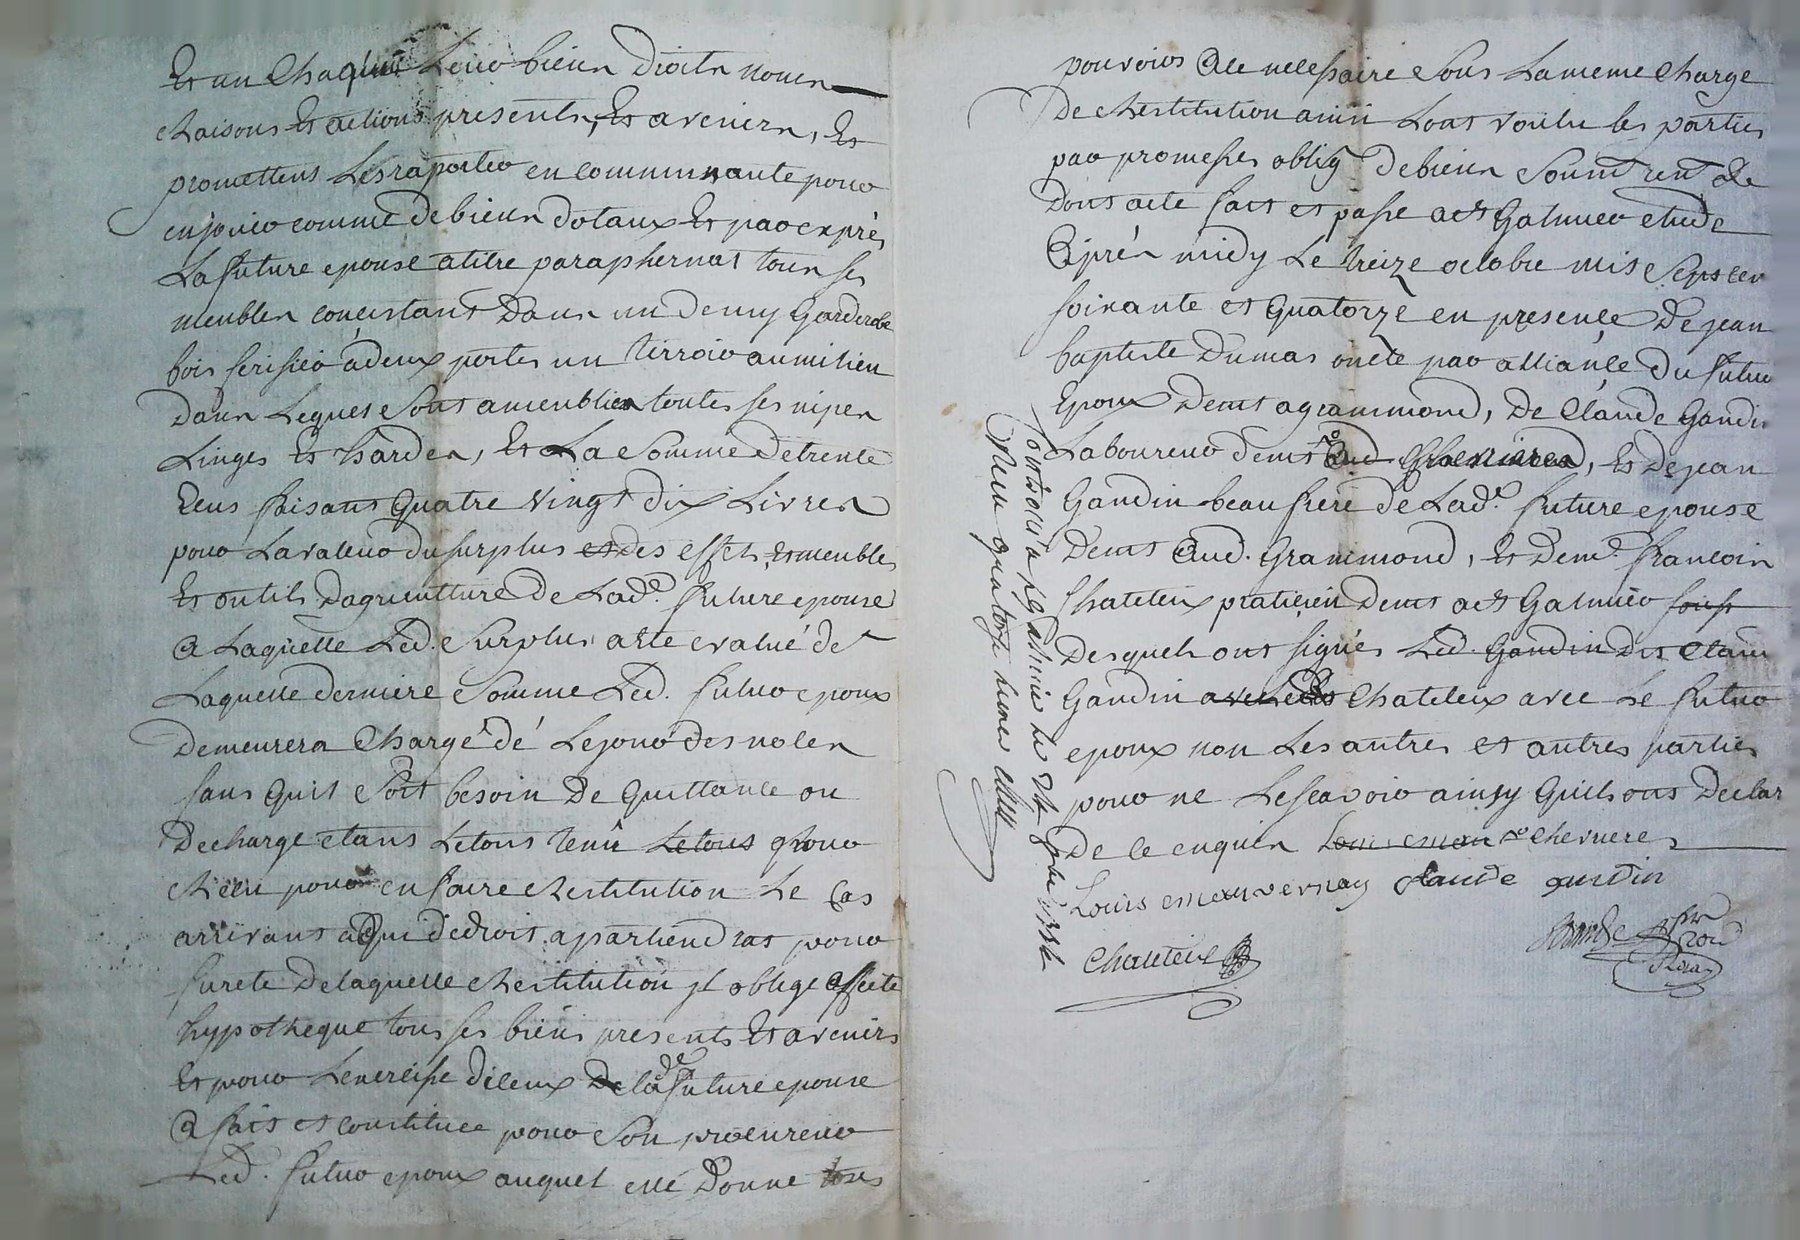 Et un chaqun Leur biens Droits noms
Raisons Et actions presents, Et avenirs, Et
promettens Les raporter en communnauté pour
en jouir comme de biens dotaux Et par exprés
La future epouse a titre paraphernal tous ses
meubles concistant Dans un demy Garderobe
bois serisier a deux portes un tirroir au milieu
Dans Lequel Sont ameublies toutes ses nipes
Linges Et hardes, Et La Somme de trente
Ecus faisant Quatre vingt dix Livres
pour La valeur du surplus et des effets Et meubles
Et outils Dagriculture de Lad.e future epouse
a Laquelle Led. Surplus a été evalué de
Laquelle derniere Somme Led. futur epoux
Demeurera Chargé dé Le jour des noces
sans quil Soit besoin de quittance ou
Decharge etans Letous tenu Letous pour
Recu pour en faire Restitution Le Cas
arrivant a Qui de droit apartiendrat pour
sureté de laquelle Restitution jl oblige affecte
hypotheque tous ses biens presents Et avenirs
Et pour Lexercisse diceux De lad.e future epouse
a fait et constitue pour Son procureur
Led. futur epoux auquel elle Donne tous
pouvoirs a ce necessaire Sous La meme charge
De Restitution ainsi Lont voulu les parties
par promesses oblig de biens Soumt rent &e
Dont acte fait et passé a st Galmier etude
Après midy Le treize octobre mil Sept cen
soixante et Quatorze en presence De jean
baptiste Dumas oncle par alliance du futur
Epoux demt a grammond, De Claude Gandin
Laboureur demt aud , Et De jean
Gandin beaufrere de Lad.e future epouse
demt aud. Grammond, Et de m.e francois
Chateleix praticien demt a st Galmier sousss
Desquels ont signés Led. Gandin dit Claude
Gandin avec Chateleix avec Le futur
epoux non Les autres et autres parties
pour ne Lescavoir ainsy quils ont Declar
De ce enquis
Louis vernay claude gandin
Chateleix
Controlé a st Galmier Le 24 8bre 1774
Recu quatorze livres